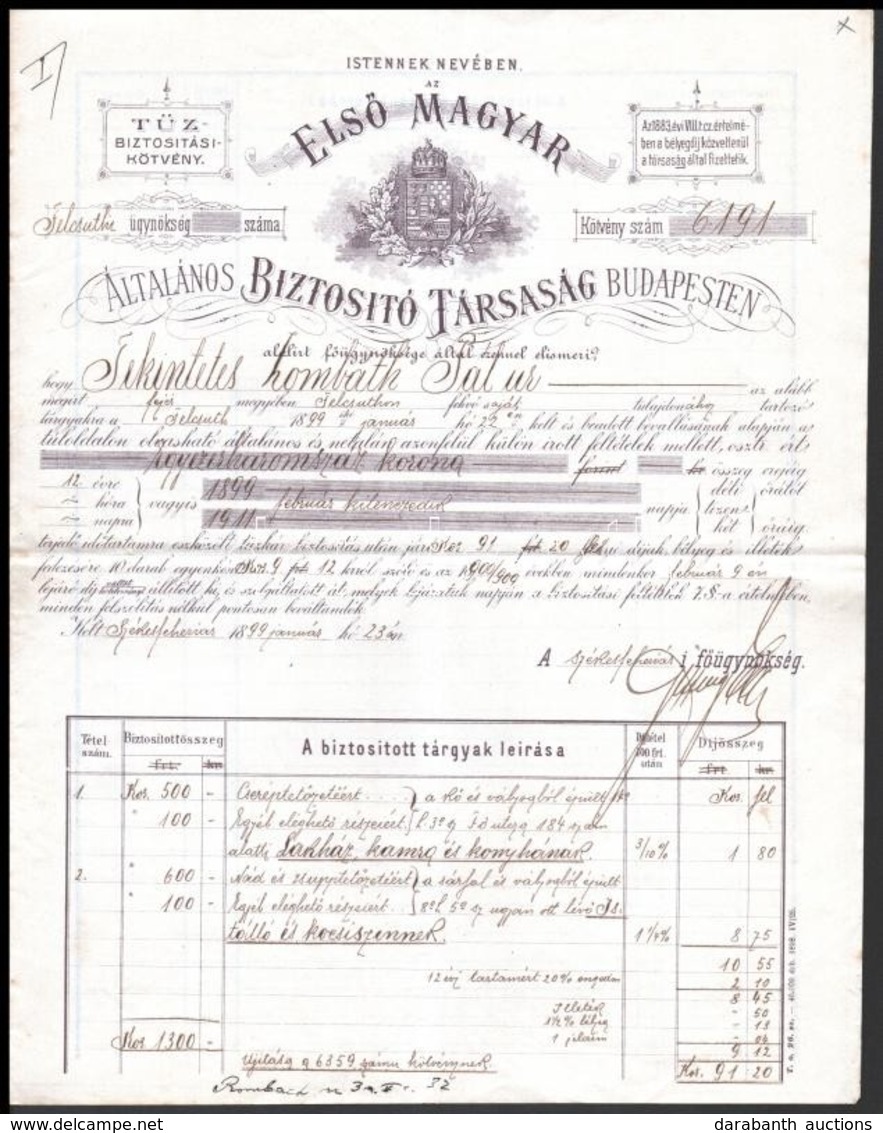 I
x
ISTENNEK NEVÉBEN.
AZ
ELSŐ MAGYAR
TŰZ-
BIZTOSITÁSI-
KÖTVÉNY.
Az 1883. évi VIII. t. cz. értelmé-
ben a bélyegdíj közvetlenül
a társaság által fizettetik.
Felcsuthi ügynökség száma
Kötvény szám 6191
ÁLTALÁNOS BIZTOSITÓ TÁRSASÁG BUDAPESTEN
alólirt főügynöksége által ezennel elismeri,
hogy Tekintetes Pál ur az alább
megirt fejér megyében Felcsuthon fekvő saját tulajdonához tartozó
tárgyakra a Felcsuth 1899 január hó 22 én kelt és beadott bevallásának alapján a
túloldalon olvasható általános és netalán azonfelül külön irott feltételek mellett, osztr. ért.
Egyezerháromszáz korona forint kr összeg erejéig
12 évre
hóra
napra
vagyis
1899
február kilenczedik
1911
napja
déli órától
tizen-
két óráig
terjedő időtartamra eszközölt tűzkár biztositás után járó Kor 91 frt. 20 fillérnyi dijnak, bélyeg és illeték
fedezésére 10 darab egyenként Kor. 9 frt 12 krról szóló és az 1900/909 években mindenkor február 9 én
lejáró díj állított ki, és szolgáltatott át, melyek lejáratuk napján a biztosítási feltételek 7. §-a értelmében,
minden felszólítás nélkül pontosan beváltandók.
Kelt Székesfehérvár 1899 január hó 23 án
A székesfehérvár i főügynökség.
Tétel szám.
Biztositott összeg
frt. kr
A biztositott tárgyak leirása
Díjtétel 100 frt. után
Díjösszeg
frt kr
1. Kor. 500 - Cseréptetőzetéért .... a kő és vályogból épült Kor. fil
" 100 - Egyéb éléghető részeiért. Fő utcza 184 szám
alatti Lakház, kamra és konyhának. 3/10% 1 80
2. " 600 - Nád és zsupptetőzetéért a sárfal és vályogból épült
" 100 - Egyéb éléghető részeiért. ugyan ott lévő Is-
tálló és kocsiszinnek. 1 1/4% 8 75
10 55
12 évi tartamért 20% engedm 2 10
8 45
Illeték - 50
1½% bélyeg - 13
- 04
9 12
Kor 1300 -
Ujitása a 6359 számu kötvénynek
Kor. 91 20
darabanth auctions